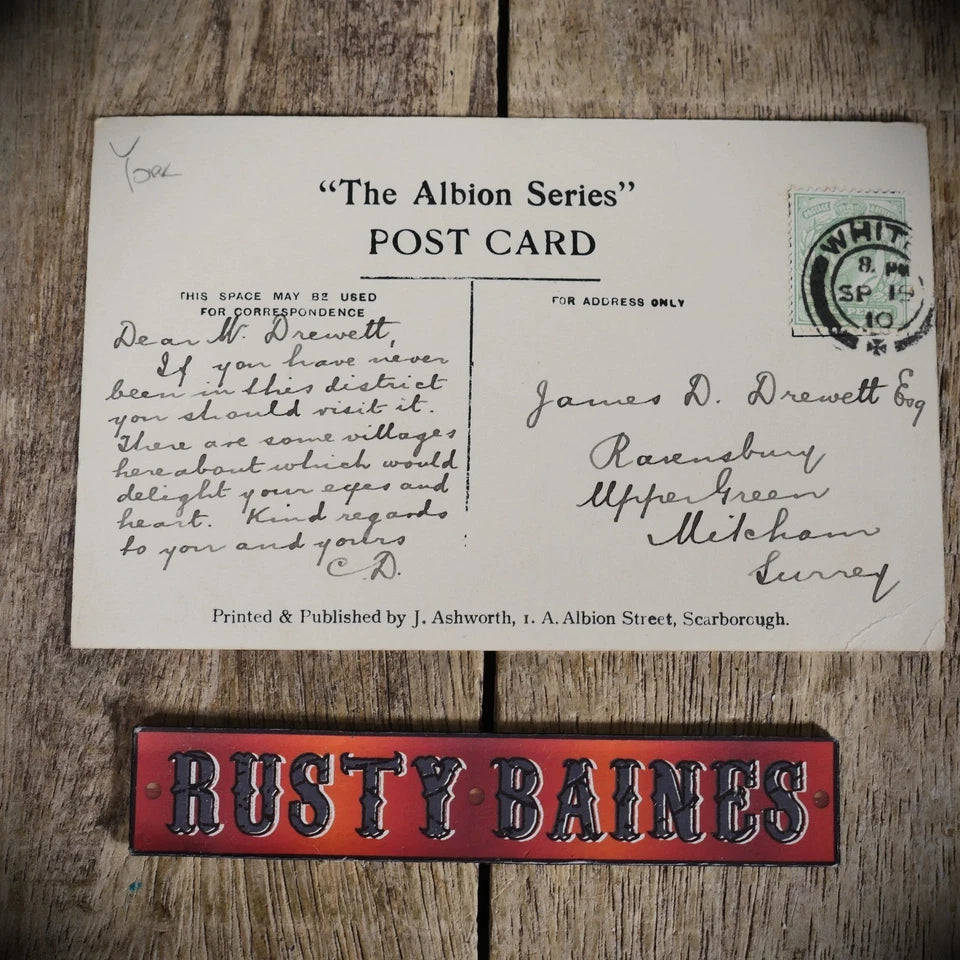 York
“The Albion Series”
POST CARD
THIS SPACE MAY BE USED
FOR CORRESPONDENCE
FOR ADDRESS ONLY
WHIT
8. PM
SP 18
10
Dear Mr. Drewett,
If you have never
been in this district
you should visit it.
There are some villages
hereabout which would
delight your eyes and
heart. Kind regards
to you and yours
C.D.
James D. Drewett Esq
Ravensbury
Upper Green
Mitcham
Surrey
Printed & Published by J. Ashworth, 1. A. Albion Street, Scarborough.
RUSTY BAINES